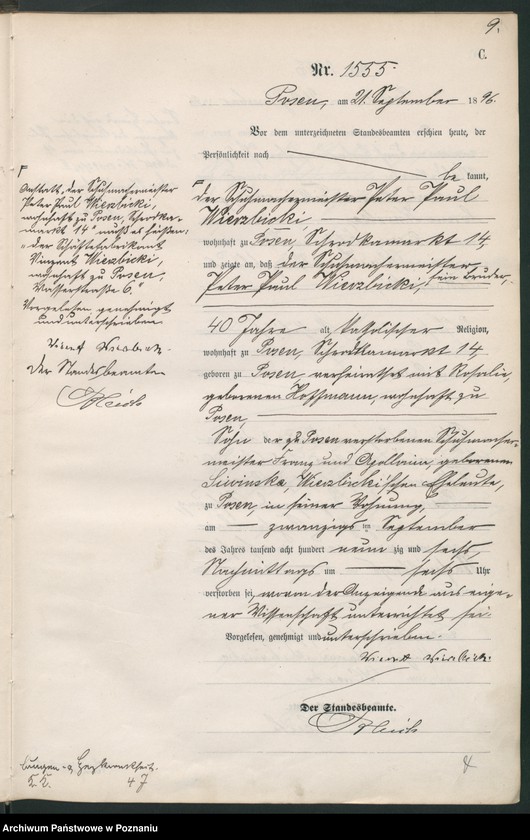 9.
C.
Nr. 1555.
Posen, am 21. September 1896.
Vor dem unterzeichneten Standesbeamten erschien heute, der
Persönlichkeit nach
be kannt,
der Schuhmachermeister Peter Paul
Wierzbicki,
wohnhaft zu Posen, Schrodkamarkt 14,
und zeigte an, daß der Schuhmachermeister
Peter Paul Wierzbicki, sein Bruder,
40 Jahre alt, katolischer Religion,
wohnhaft zu Posen, Schrodkamarkt 14,
geboren zu Posen, verheirathet mit Rosalie,
geborenen Hoffmann, wohnhaft zu
Posen,
Sohn der zu Posen verstorbenen Schuhmacher-
meister Franz und Apollonia, geborenen
Wierzbicki'schen Eheleute,
zu Posen in seiner Wohnung,
am zwanzigsten September
des Jahres tausend acht hundert neun zig und sechs,
Nachmittags um sechs Uhr
verstorben sei, wovon der Anzeigende aus eige-
ner Wissenschaft unterrichtet sei.
Vorgelesen, genehmigt und unterschrieben.
Der Standesbeamte.
Anstatt „der Schuhmachermeister
Peter Paul Wierzbicki,
wohnhaft zu Posen, Schrodka-
markt 14" muß es heißen:
„der
Vinzent Wierzbicki,
wohnhaft zu Posen,
Wasserstraße 6."
Vorgelesen genehmigt
und unterschrieben
Der Standesbeamte
Lungen- u. Herzkrankheit.
47
Archiwum Państwowe w Poznaniu